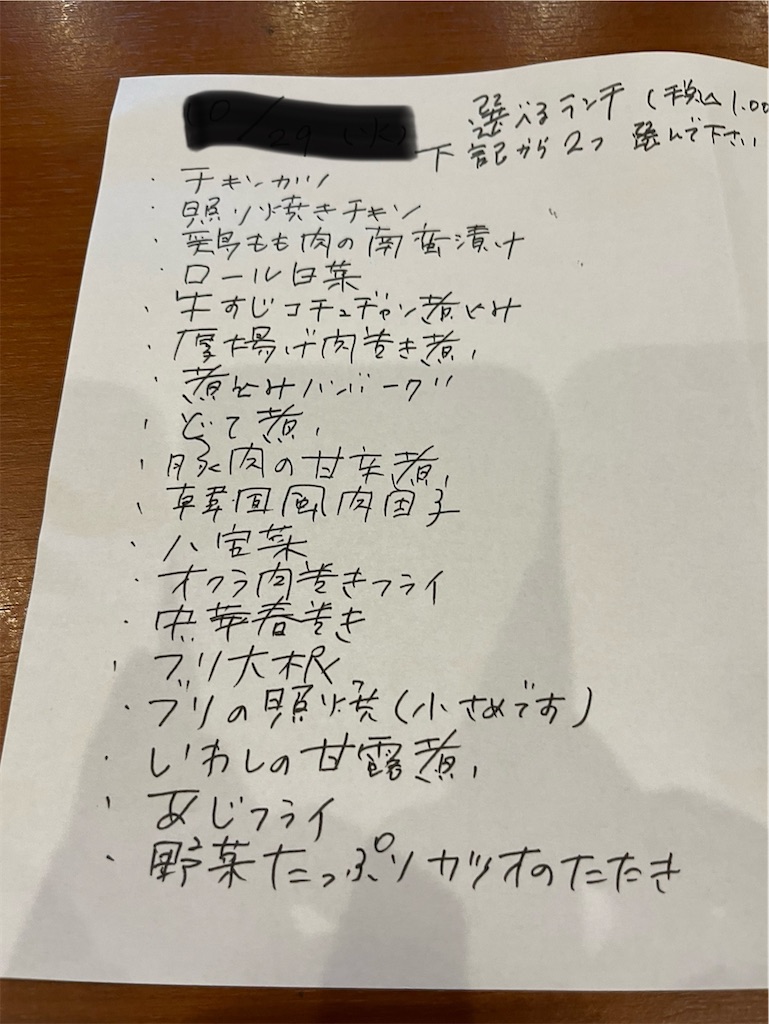 10/29 (火)
選べるランチ (税込 1.00
下記から2つ 選んで下さい
・チキンカツ
・照り焼きチキン
・鶏もも肉の南蛮漬け
・ロール白菜
・牛すじコチュヂャン煮込み
・厚揚げ肉巻き煮
・煮込みハンバーグ
・どて煮
・豚肉の甘辛煮
・韓国風肉団子
・八宝菜
・オクラ肉巻きフライ
・中華春巻き
・ブリ大根
・ブリの照り焼(小さめです)
・いわしの甘露煮
・あじフライ
・野菜たっぷりカツオのたたき